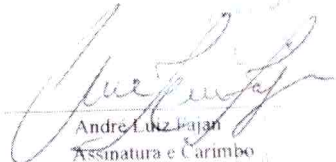 André Luiz Fajan
Assinatura e Carimbo